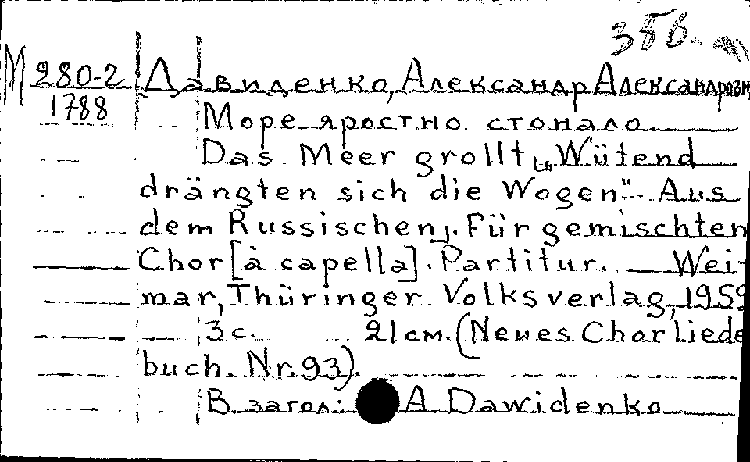 35б.
М 280-2 Давиденко, Александр Александрови
1788 Море яростно стонало
Das Meer grollt „Wütend
drängten sich die Wogen". Aus
dem Russischen. Für gemischten
Chor [à capella]. Partitur. Wei-
mar, Thüringer Volksverlag, 1959
3 с. 21 см. (Neues Chorliede
buch. Nr. 93).
В загол.: A Dawidenko